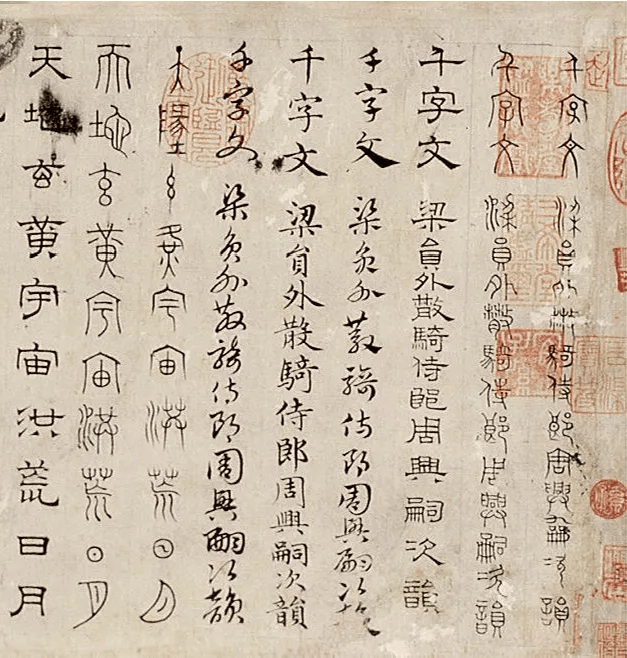 千字文 梁員外散騎侍郎周興嗣次韻
千字文 梁員外散騎侍郎周興嗣次韻
千字文 梁員外散騎侍郎周興嗣次韻
千字文 梁員外散騎侍郎周興嗣次韻
千字文 梁員外散騎侍郎周興嗣次韻
千字文 梁員外散騎侍郎周興嗣次韻
天地玄黃宇宙洪荒日月
天地玄黃宇宙洪荒日月
天地玄黃宇宙洪荒日月